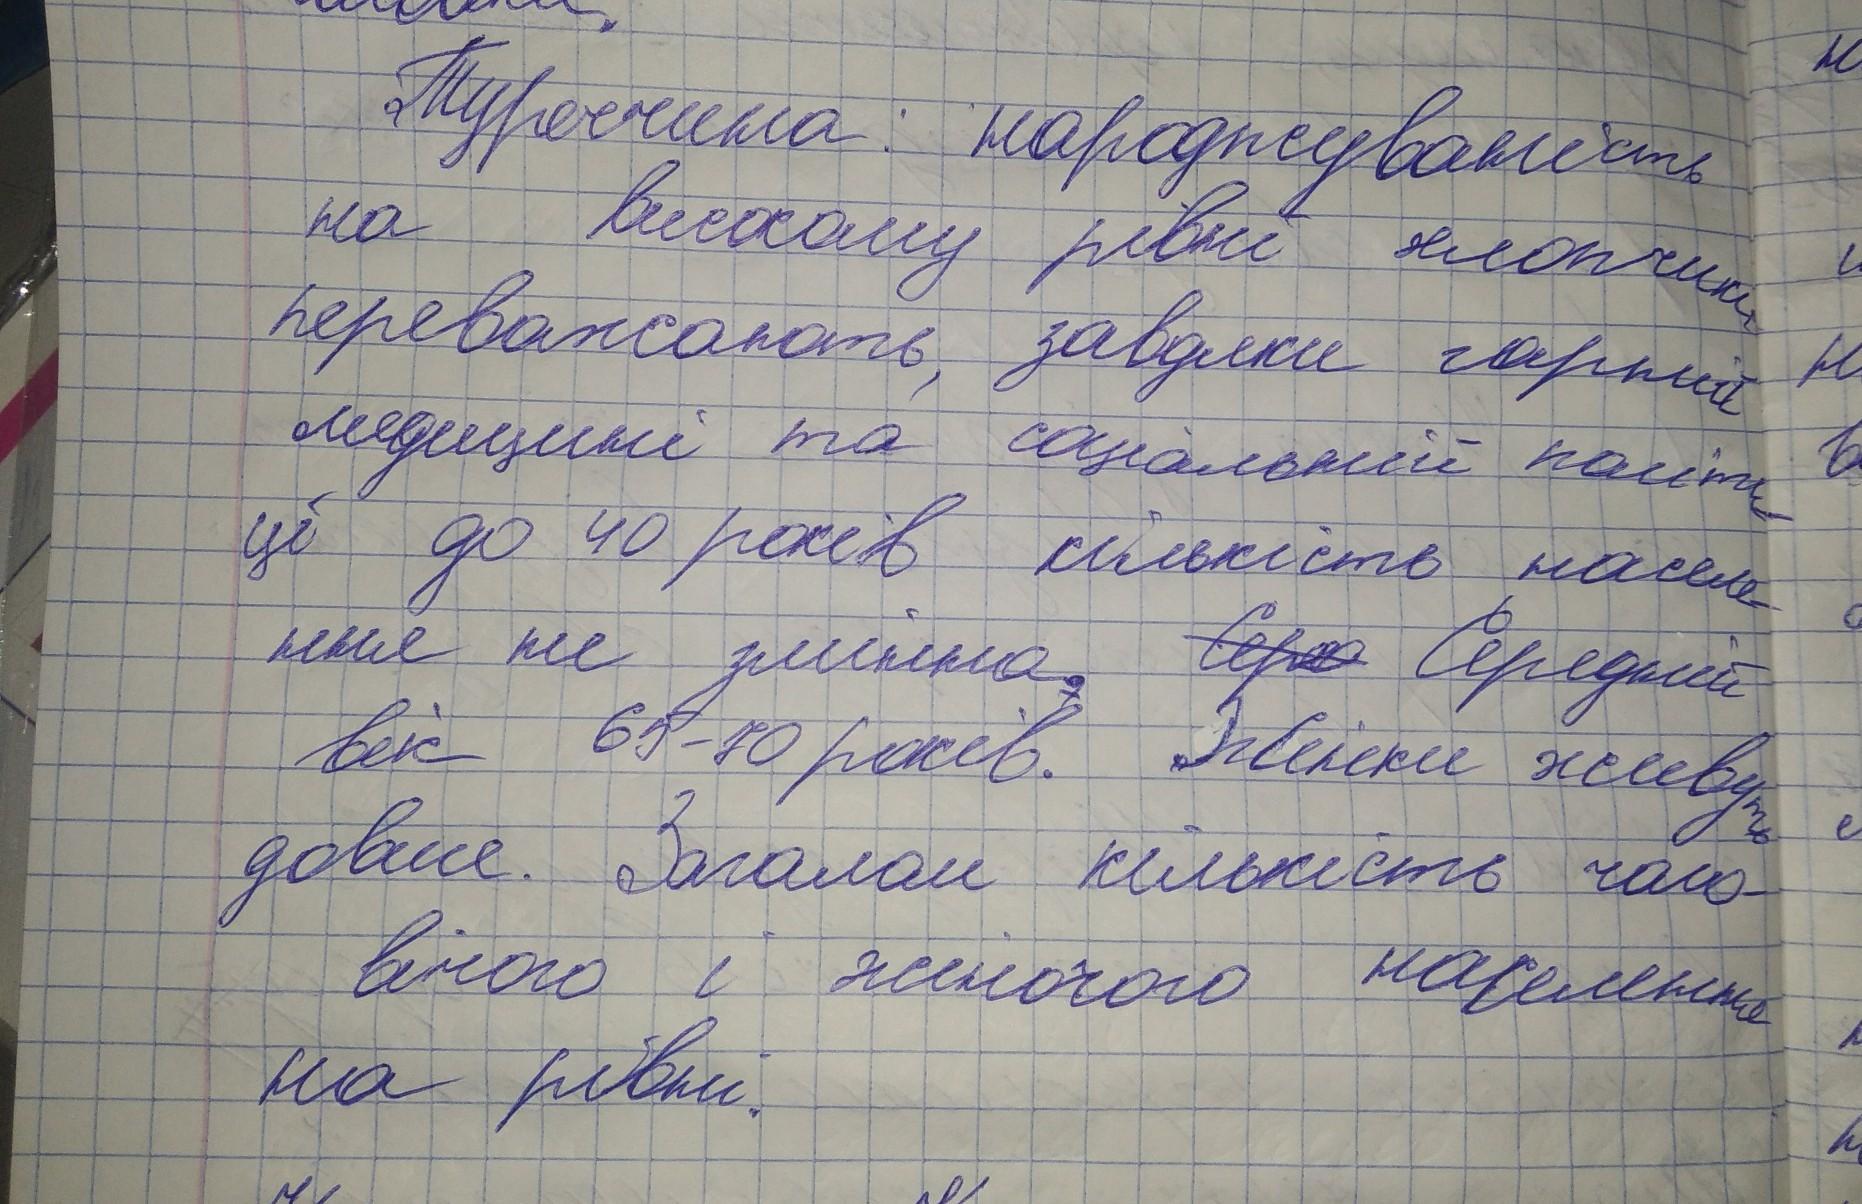 Туреччина: народжуваність
на високому рівні хлопчики
переважають, завдяки гарній
медицині та соціальній політи-
ці до 40 років кількість населе-
ння не змінна. Середній
вік 65-70 років. Жінки живуть
довше. Загалом кількість чоло-
вічого і жіночого населення
на рівні.